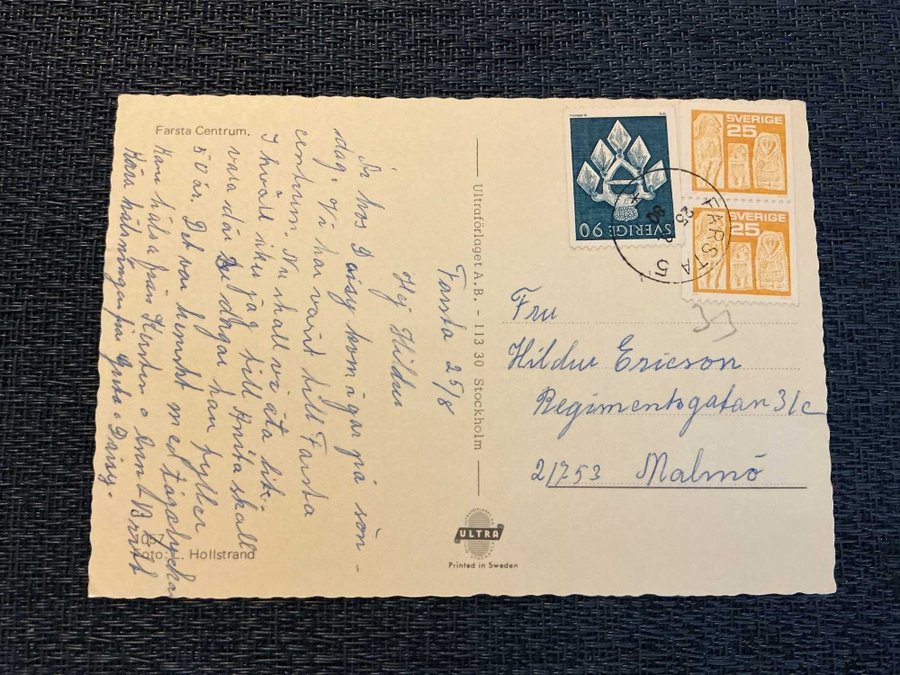 Farsta Centrum.
Farsta 25/8
Hej Hildur
Är hos Daisy kom igår på sön-
dag. Vi har varit till Farsta
centrum. Nu skall vi äta lite.
I kväll åker jag till Anita skall
vara där dagar han fyller
5 år. Det var hemskt med tågolyckan
Kan hälsa från Kerstin o Britt
Kära hälsningar fru Greta o Daisy.
Foto: Hollstrand
Ultraförlaget A.B. - 113 30 Stockholm
ULTRA
Printed in Sweden
SVERIGE 90
SVERIGE
25
SVERIGE
25
FARSTA 5
25
80
33
Fru
Hildur Ericson
Regimentsgatan 31c
21753 Malmö